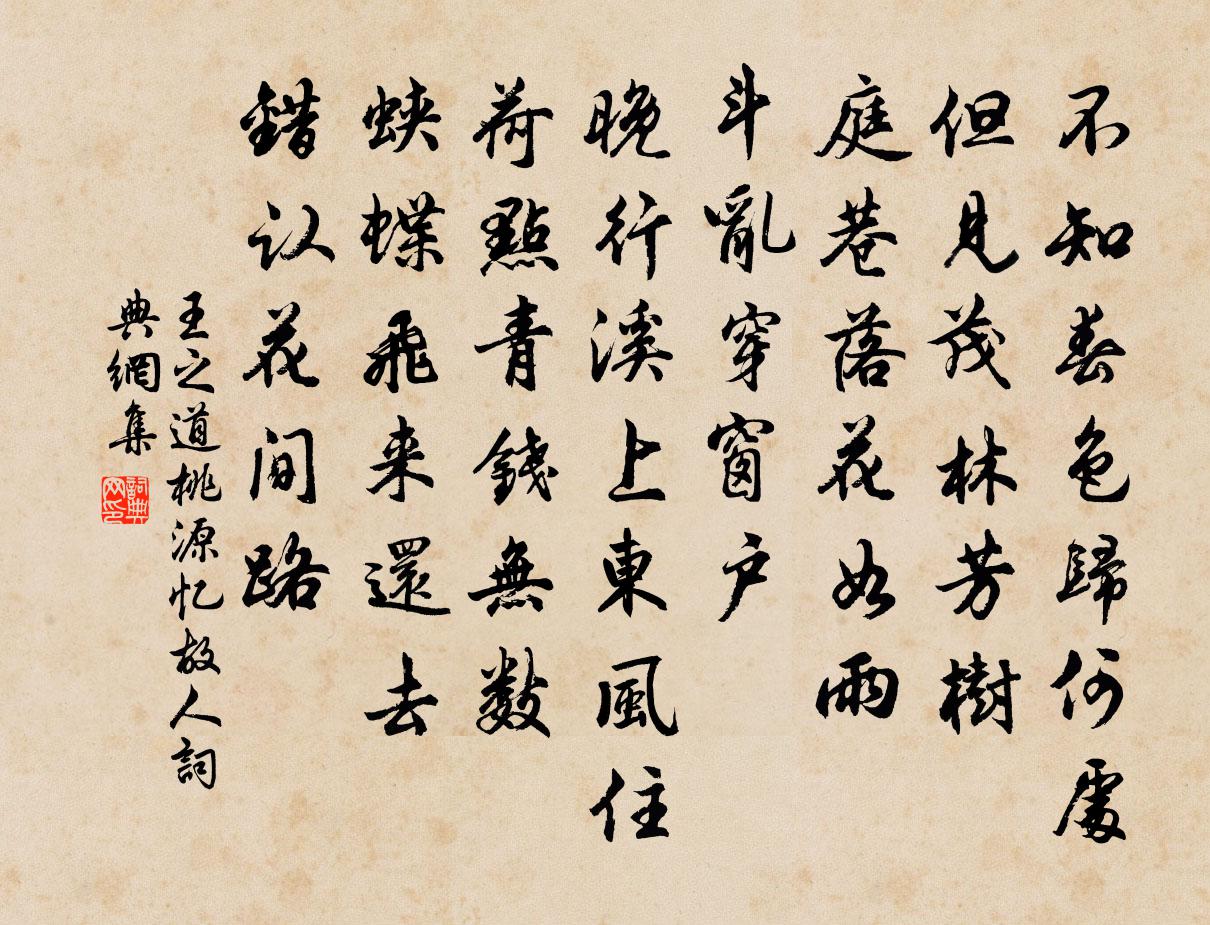 不知春色歸何處
但見茂林芳樹
庭巷落花如雨
斗亂穿窗户
晚行溪上東風住
荷點青錢無數
蛺蝶飛来還去
錯认花間路
王之道桃源忆故人詞
典網集
詞典网印